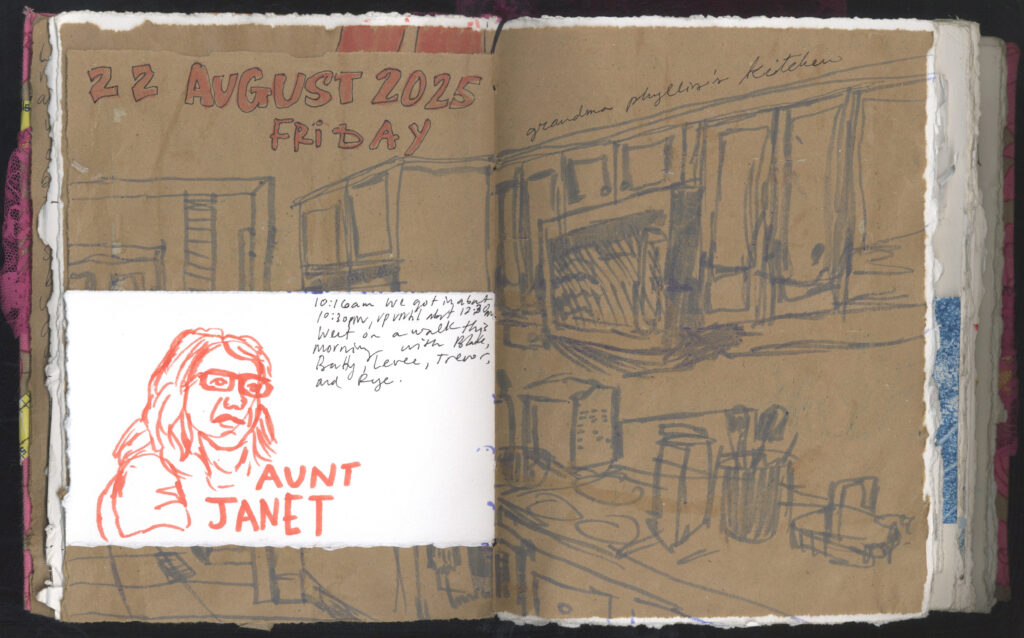 22 AUGUST 2025
FRiDAY
grandma phyllis's kitchen
10:16am We got in about
10:30pm, up until abt 12:30am
Went on a walk this
morning with Blake,
Levee, Trevor,
and Rye.
AUNT
JANET